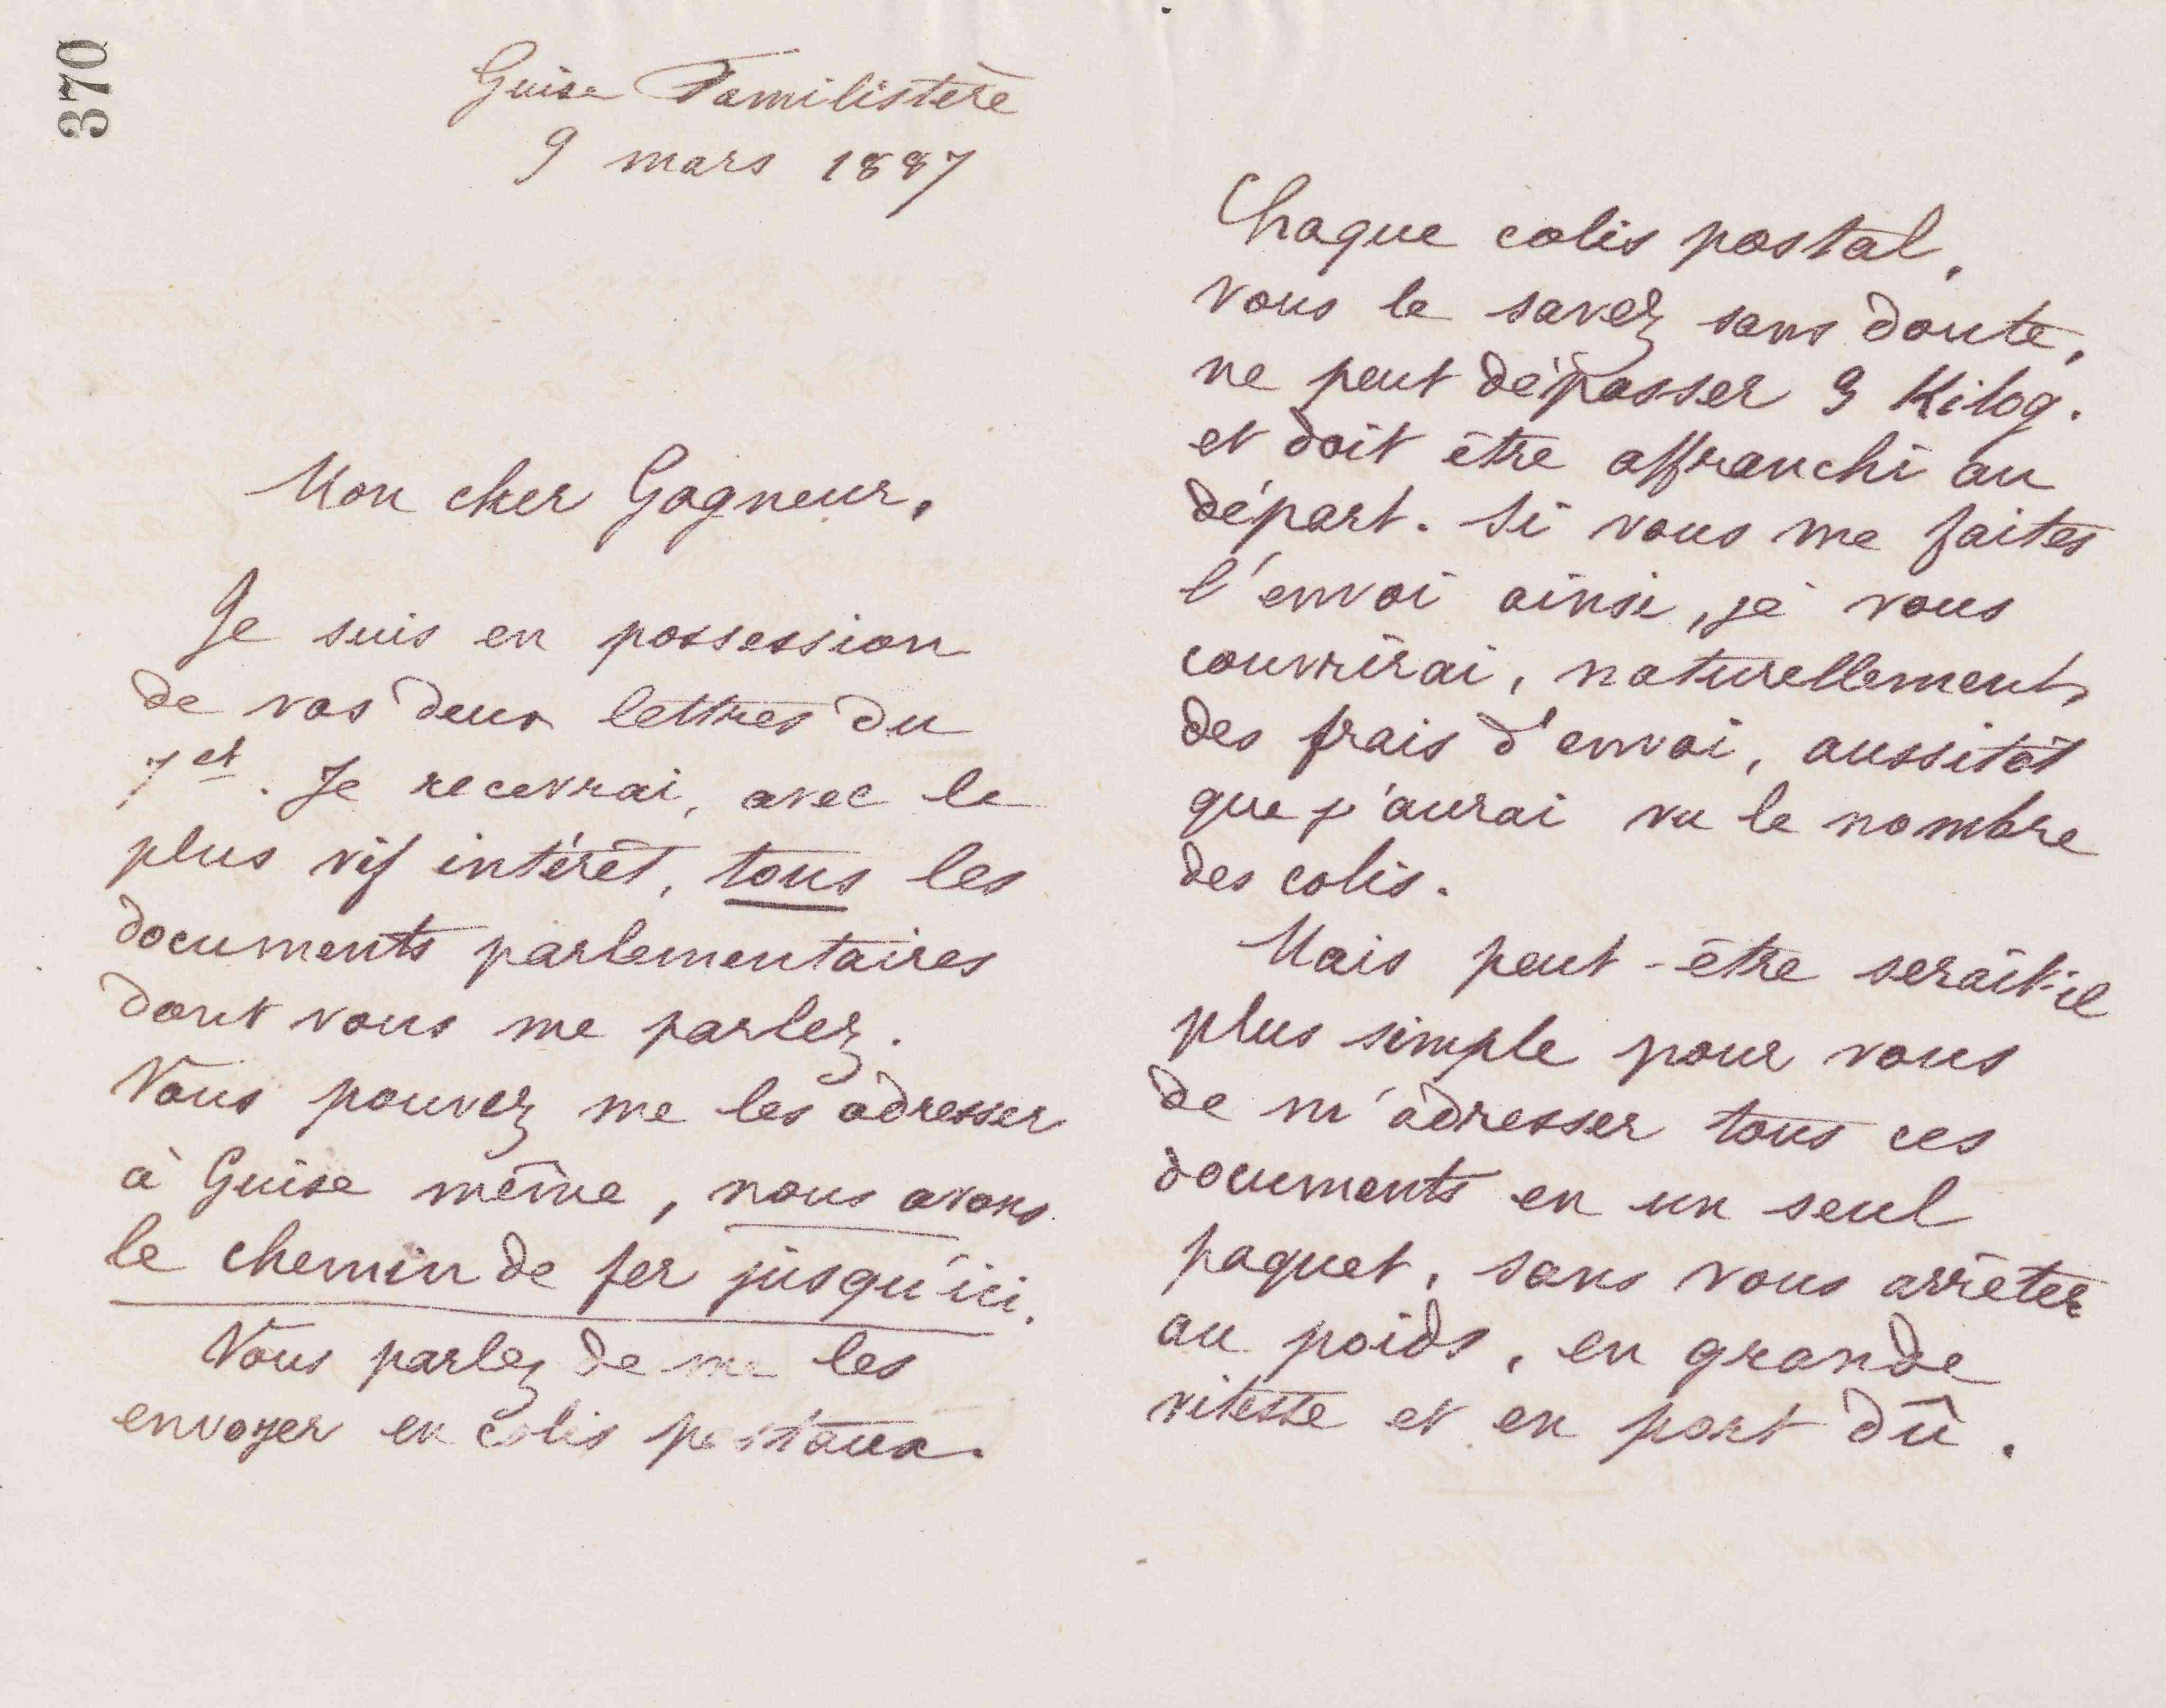 370
Guise Familistère
9 mars 1887
Mon cher Gagneur,
Je suis en possession
de vos deux lettres du
7 ct. Je recevrai, avec le
plus vif intérêt, tous les
documents parlementaires
dont vous me parlez.
Vous pouvez me les adresser
à Guise même, nous avons
le chemin de fer jusqu'ici.
Vous parlez de me les
envoyer en colis postaux.
Chaque colis postal,
vous le savez sans doute,
ne peut dépasser 3 Kilog.
et doit être affranchi au
départ. Si vous me faites
l'envoi ainsi, je vous
couvrirai, naturellement,
des frais d'envoi, aussitôt
que j'aurai vu le nombre
des colis.
Mais peut-être serait-il
plus simple pour vous
de m'adresser tous ces
documents en un seul
paquet, sans vous arrêter
au poids, en grande
vitesse et en port dû.